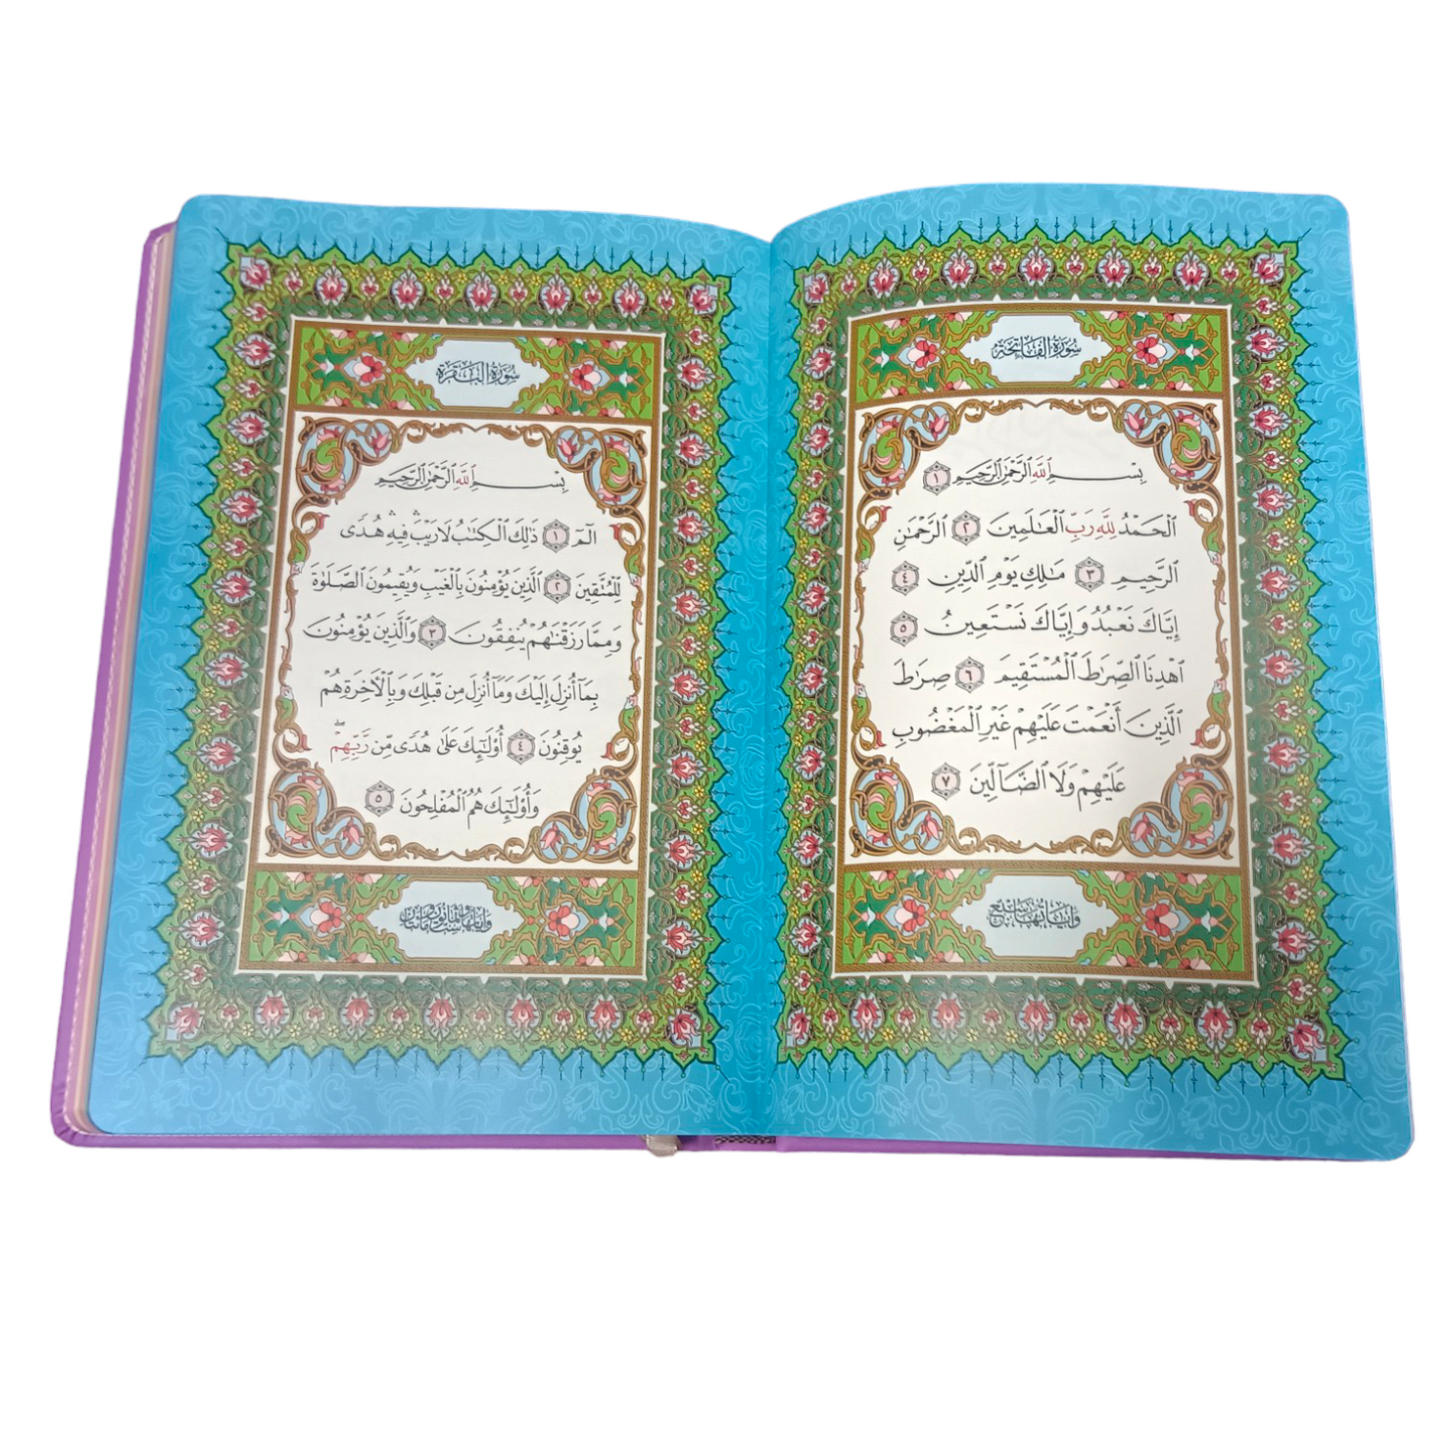 سُورَةُ الفَاتِحَةِ
بِسْمِ ٱللَّهِ ٱلرَّحْمَٰنِ ٱلرَّحِيمِ ١
ٱلْحَمْدُ لِلَّهِ رَبِّ ٱلْعَٰلَمِينَ ٢ ٱلرَّحْمَٰنِ
ٱلرَّحِيمِ ٣ مَٰلِكِ يَوْمِ ٱلدِّينِ ٤
إِيَّاكَ نَعْبُدُ وَإِيَّاكَ نَسْتَعِينُ ٥
ٱهْدِنَا ٱلصِّرَٰطَ ٱلْمُسْتَقِيمَ ٦ صِرَٰطَ
ٱلَّذِينَ أَنْعَمْتَ عَلَيْهِمْ غَيْرِ ٱلْمَغْضُوبِ
عَلَيْهِمْ وَلَا ٱلضَّآلِّينَ ٧
وَآيَاتُهَا سَبْعٌ
سُورَةُ البَقَرَةِ
بِسْمِ ٱللَّهِ ٱلرَّحْمَٰنِ ٱلرَّحِيمِ
الٓمٓ ١ ذَٰلِكَ ٱلْكِتَٰبُ لَا رَيْبَۛ فِيهِۛ هُدًى
لِّلْمُتَّقِينَ ٢ ٱلَّذِينَ يُؤْمِنُونَ بِٱلْغَيْبِ وَيُقِيمُونَ ٱلصَّلَوٰةَ
وَمِمَّا رَزَقْنَٰهُمْ يُنفِقُونَ ٣ وَٱلَّذِينَ يُؤْمِنُونَ
بِمَآ أُنزِلَ إِلَيْكَ وَمَآ أُنزِلَ مِن قَبْلِكَ وَبِٱلْأَخِرَةِ هُمْ
يُوقِنُونَ ٤ أُو۟لَٰٓئِكَ عَلَىٰ هُدًى مِّن رَّبِّهِمْۖ
وَأُو۟لَٰٓئِكَ هُمُ ٱلْمُفْلِحُونَ ٥